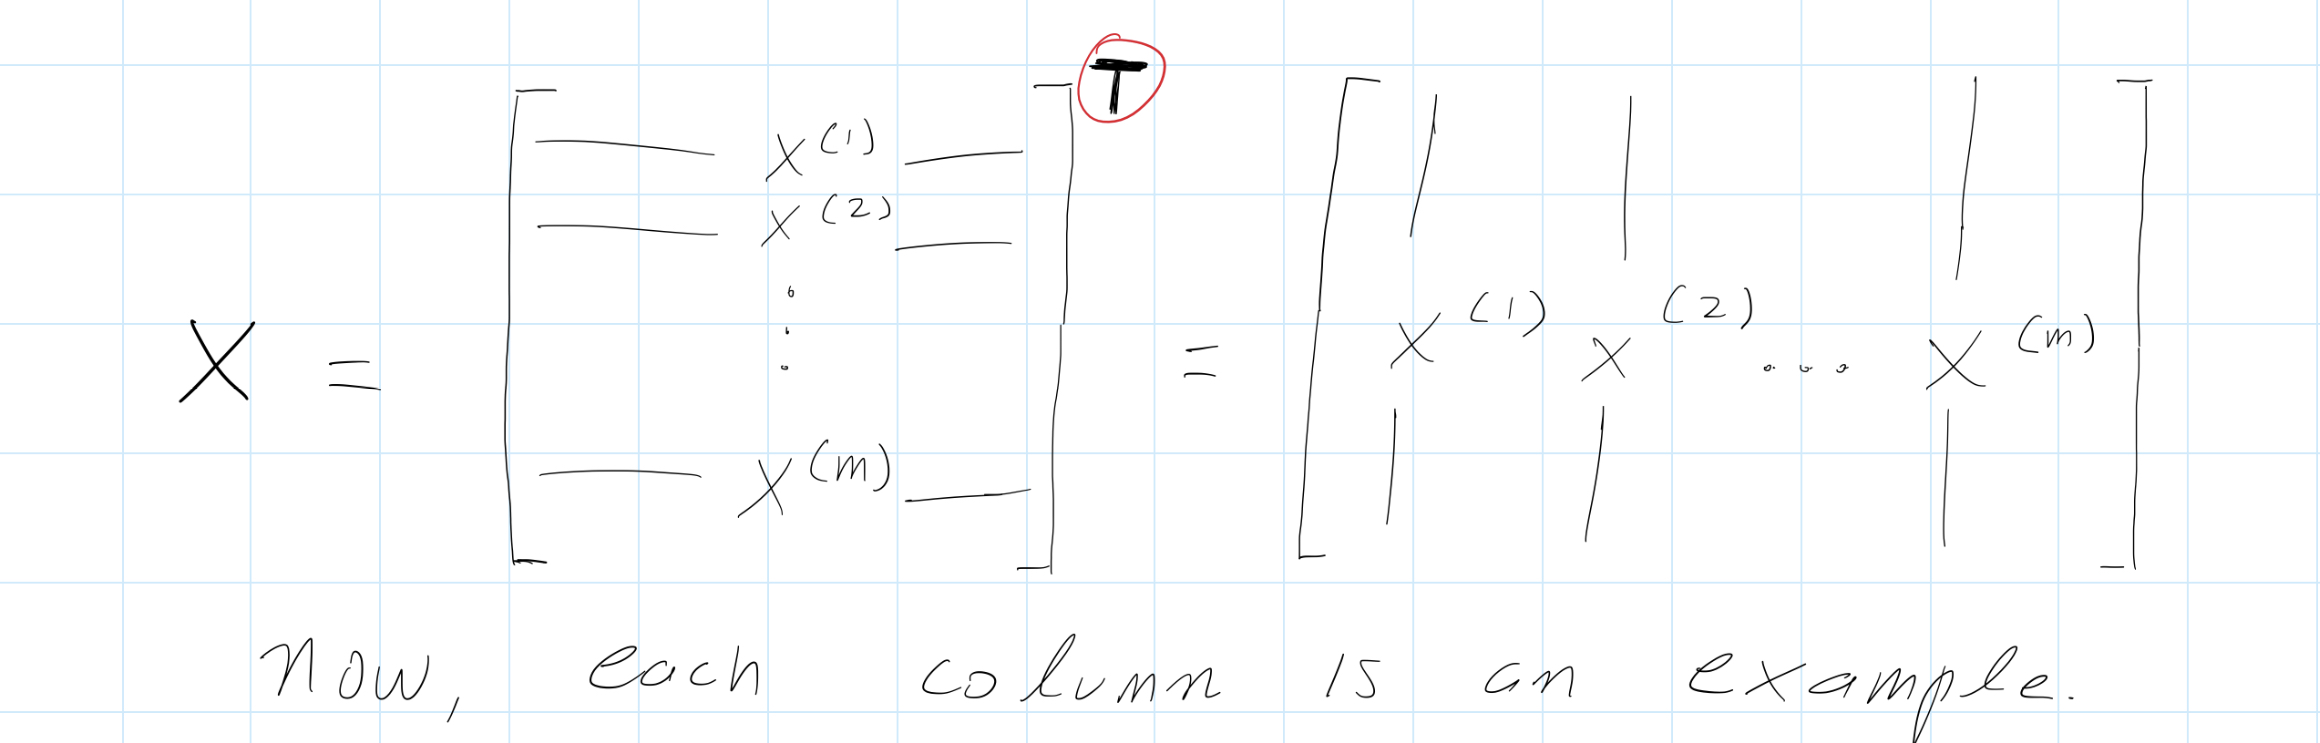 X = [ — x^(1) — — x^(2) — ⋮ — x^(m) — ]^T = [ | x^(1) | | x^(2) | ... | x^(m) | ]
Now, each column is an example.